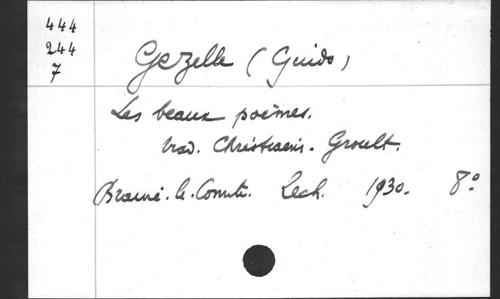 444
244
7
Gezelle (Guido)
Les beaux poèmes.
trad. Christiaens. Groult.
Braine. le. Comte. Lech. 1930. 8°